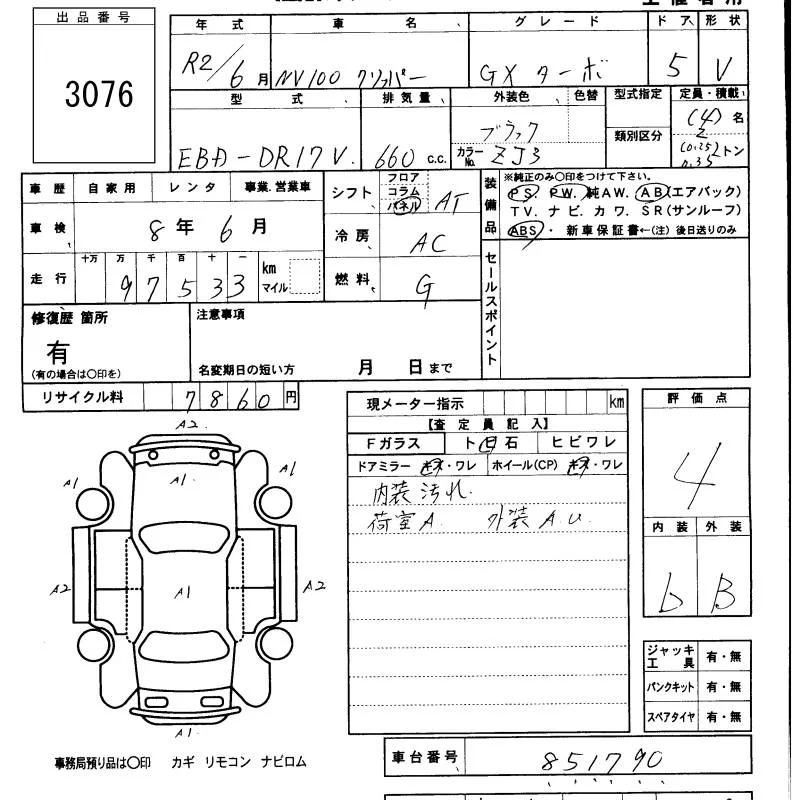 出品番号
3076
年式 車名 グレード ドア 形状
R2/6月 NV100 クリッパー GX ターボ 5 V
型式 排気量 外装色 色替 型式指定 定員・積載
EBD-DR17V 660 c.c. ブラック カラーNo. ZJ3 類別区分 (4)名
2
(0.25)
0.35 トン
車歴 自家用 レンタ 事業.営業車
車検 8年 6月
走行 十万 万 千 百 十 一
97533 km マイル
シフト フロア コラム パネル AT
冷房 AC
燃料 G
装備品
※純正のみ〇印をつけて下さい。
PS. PW. 純AW. AB(エアバック)
TV. ナビ. カワ. SR(サンルーフ)
ABS・ 新車保証書←(注)後日送りのみ
セールスポイント
修復歴 箇所
有
(有の場合は〇印を)
注意事項
名変期日の短い方 月 日まで
リサイクル料 7860円
現メーター指示 km
【査定員記入】
Fガラス ト日石 ヒビワレ
ドアミラー キズ・ワレ ホイール(CP) キズ・ワレ
内装汚れ
荷室A. 外装A.U.
評価点
4
内装 外装
b B
A2
A1 A1 A1
A2 A1 A2
A1
ジャッキ工具 有・無
パンクキット 有・無
スペアタイヤ 有・無
事務局預り品は〇印 カギ リモコン ナビロム
車台番号 851790